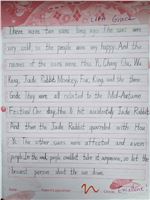 Lina Grace
There were ten suns long ago. The suns were
very cold, so the people were very happy. And the
names of the suns were Hou Yi, Chang'e, Wu
Kang, Jade Rabbit, Monkey, Fox, King and the three
Gods. They were all related to the Mid-Autumn
Festival. One day, Hou Yi hit accidentally Jade Rabbit.
And then the Jade Rabbit quarreled with Hou
Yi. The other suns were affected and even
people. In the end, people couldn't take it anymore, so let the
bravest person shoot the sun down.
Excellent!